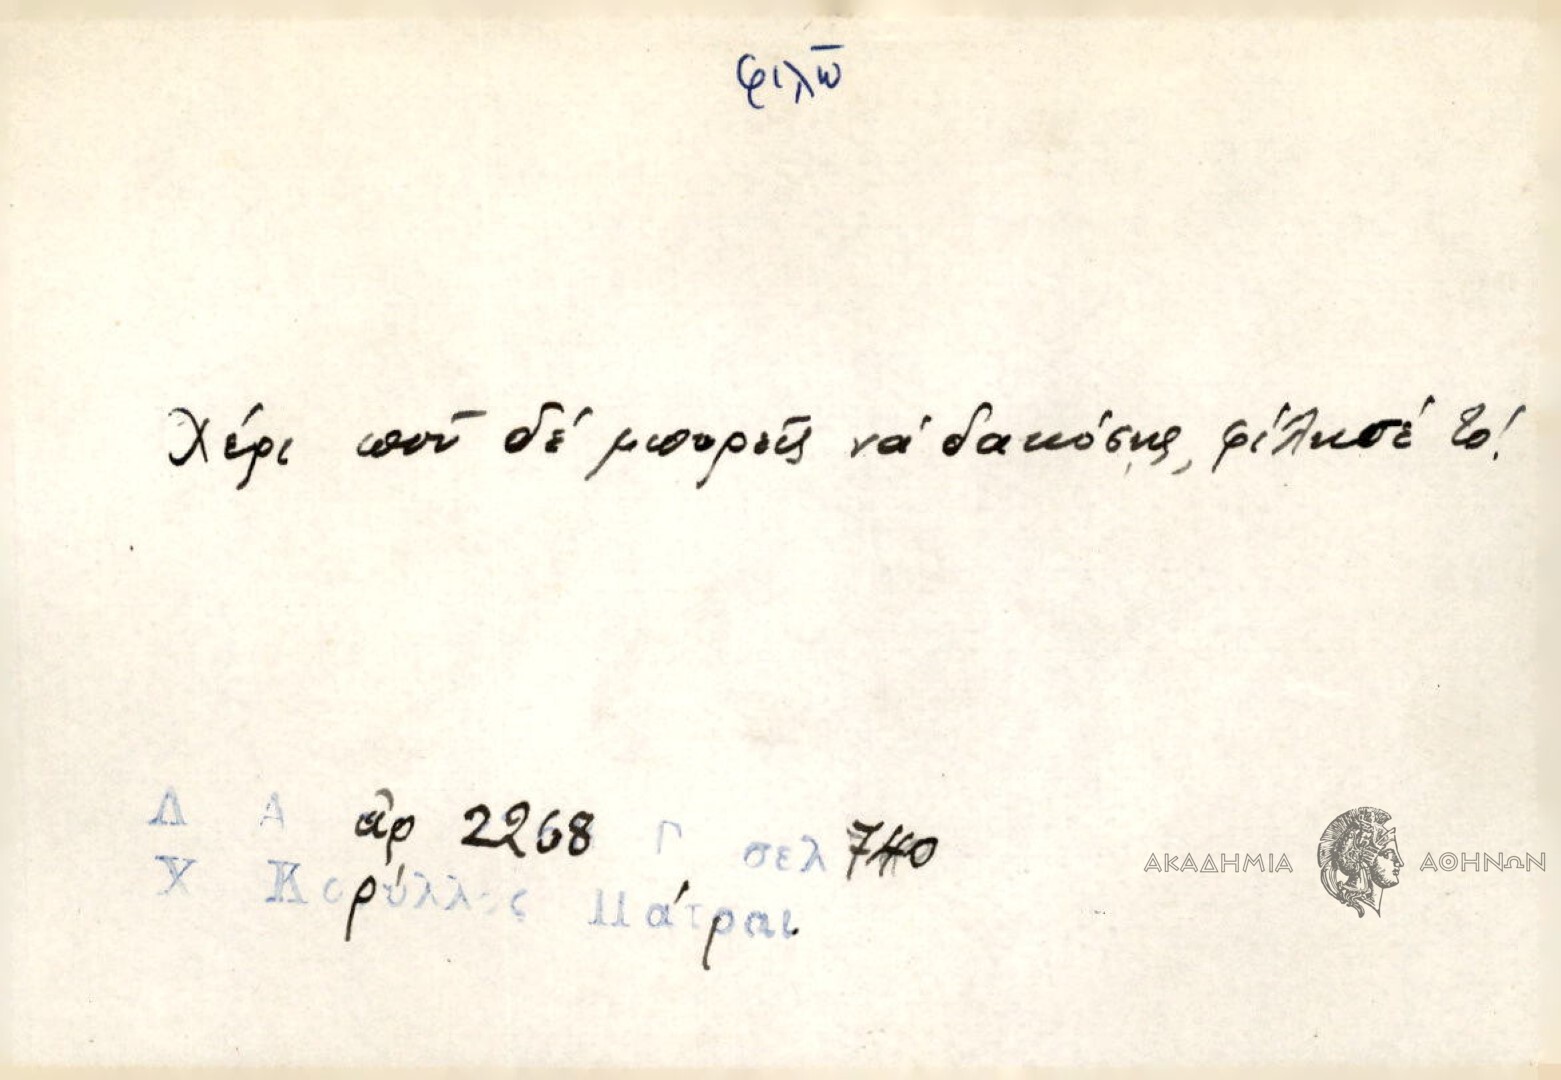 φιλῶ
Χέρι ποῦ δέ μπορεῖς νά δακώσῃς, φίλησέ το!
Λ Α ἀρ 2268 Γ σελ 740
Χ Κορύλλος Πάτραι.
ΑΚΑΔΗΜΙΑ ΑΘΗΝΩΝ